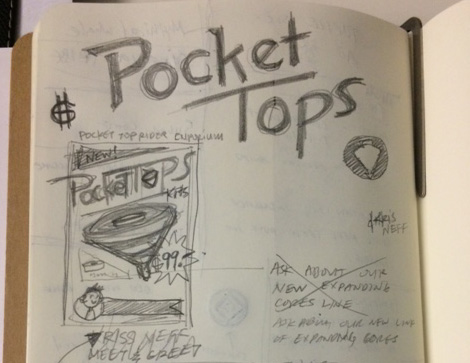 Pocket
Tops
$
POCKET TOP RIDER EMPORIUM
NEW!
POCKET TOPS
Kits
99¢
ASK ABOUT OUR
NEW EXPANDING
CORES LINE
ASK ABOUT OUR NEW LINE
OF EXPANDING CORES
NEFF